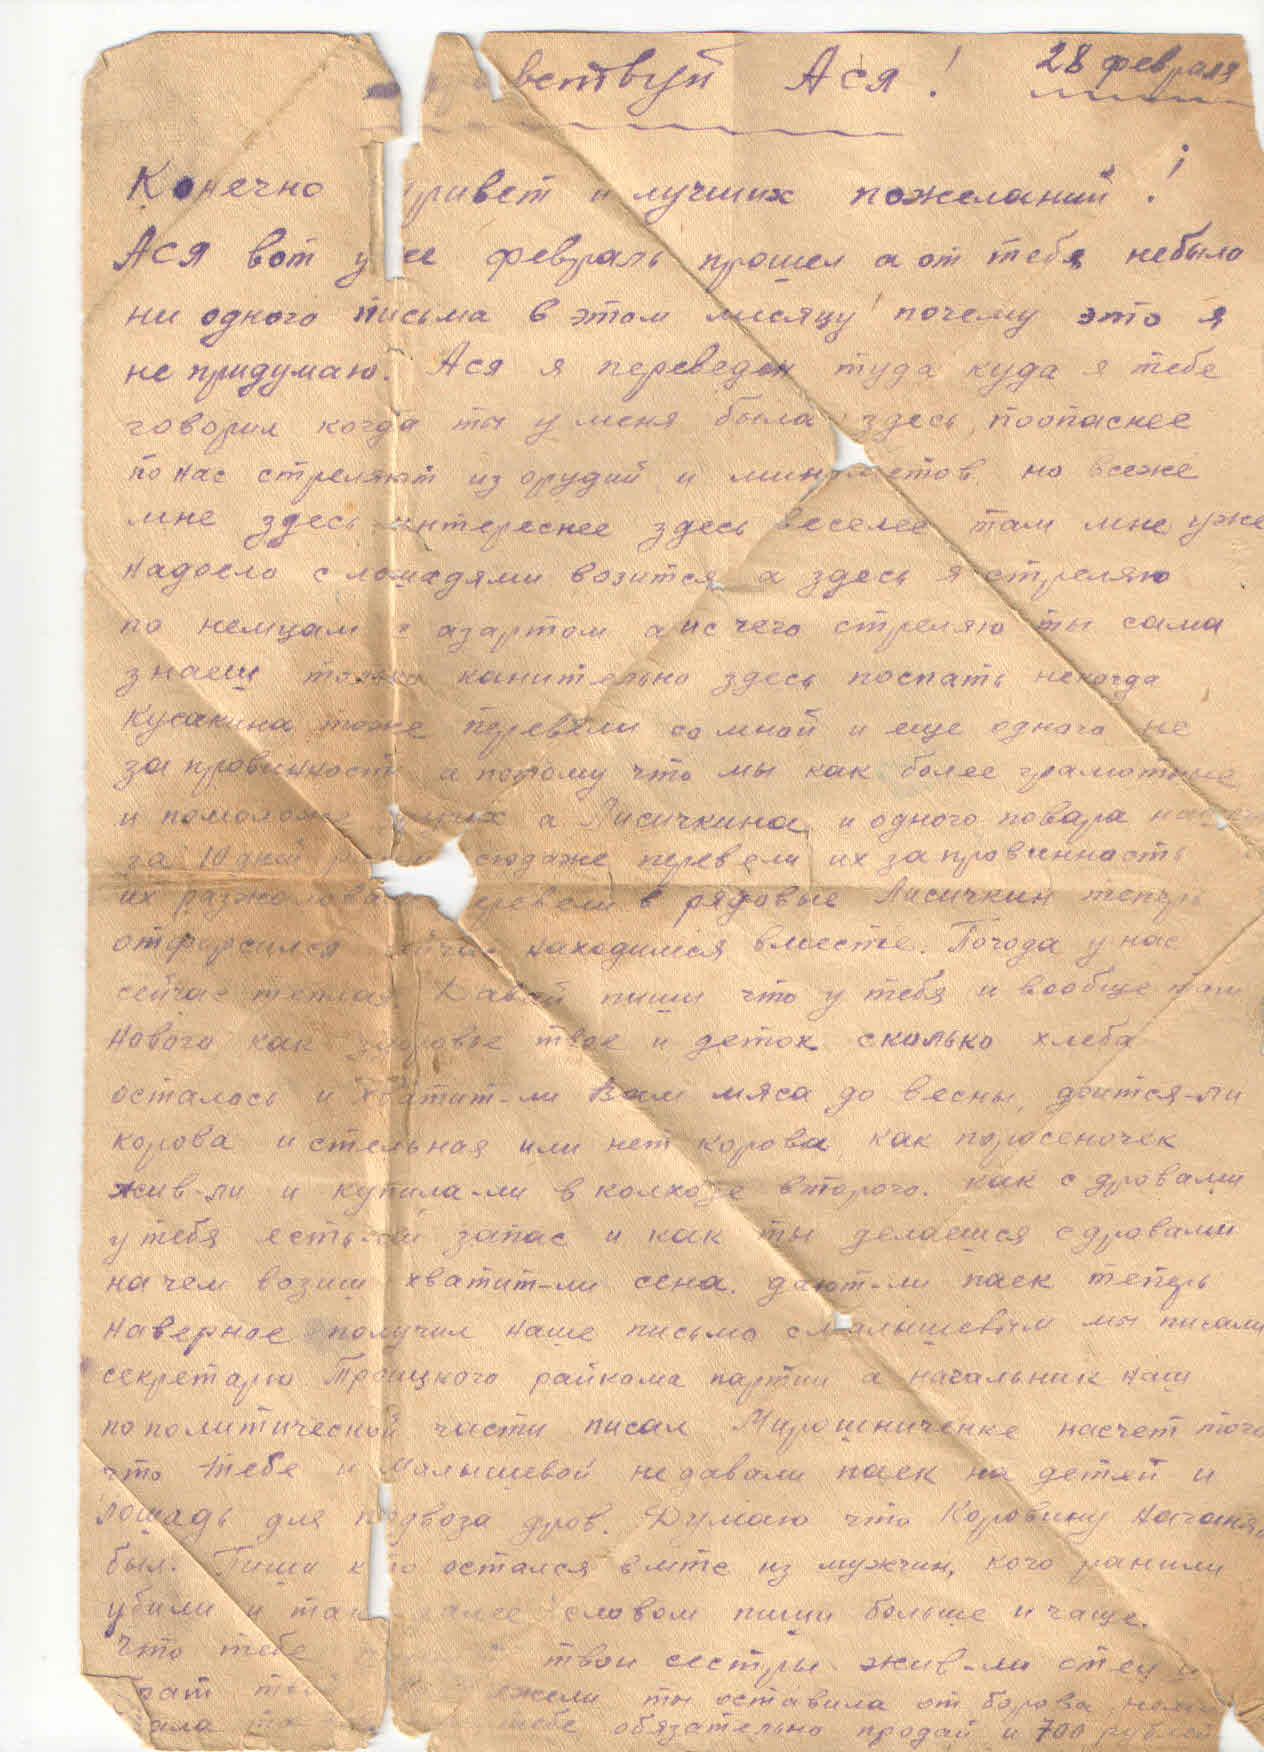 вствуй Ася! 28 февраля
Конечно привет и лучших пожеланий!
Ася вот уже февраль прошел а от тебя небыло
ни одного письма в этом месяцу почему это я
не придумаю. Ася я переведен туда куда я тебе
говорил когда ты у меня была здесь поопаснее
по нас стреляют из орудий и минометов но всеже
мне здесь интереснее здесь веселее там мне уже
надоело с лошадями возится а здесь я стреляю
по немцам с азартом а ис чего стреляю ты сама
знаеш только канительно здесь поспать некогда
Кусакина тоже перевели со мной и еще одного не
за провинность а потому что мы как более грамотные
и помоложе других а Лисичкина и одного повара
за 10 дней сюдаже перевели их за провинность
их разжаловали перевели в рядовые Лисичкин теперь
отфорсился сейчас находимся вместе. Погода у нас
сейчас теплая Давай пиши что у тебя и вообще там
нового как здоровье твое и деток сколько хлеба
осталось и хватит-ли Вам мяса до весны, доится-ли
корова и стельная или нет корова как поросеночек
жив-ли и купила-ли в колхозе второго. как с дровами
у тебя есть-ли запас и как ты делаешся с дровами
на чем возиш хватит-ли сена. дают-ли паек теперь
наверное получил наше письмо с Малышевым мы писали
секретарю Троицкого райкома партии а начальник наш
по политической части писал Мирошниченке насчет того
что тебе и Малышевой недавали паек на детей и
лошадь для подвоза дров. Думаю что Коровину
был. Пиши кто остался в мтс из мужчин, кого ранили
убили и так далее словом пиши больше и чаще.
Что тебе твои сестры жив-ли отец и
брат ежели ты оставила от борова
тебе обязательно продай и 700 рублей